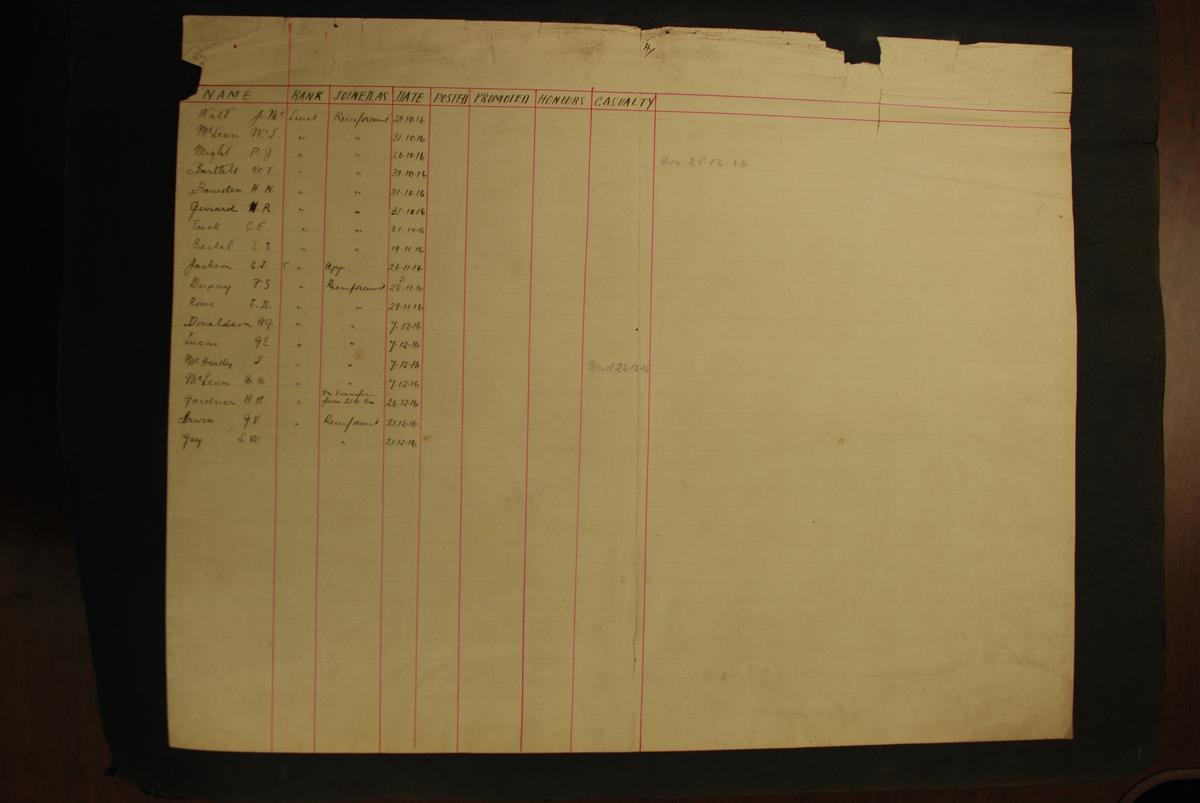 4/
NAME RANK JOINED AS DATE POSTED PROMOTED HONOURS CASUALTY
Watt J. Mc Lieut Reinforcemt 20.10.16
McLean W.J. " " 31.10.16
Might P.G. " " 20.10.16 Hos 28-12-16
W.T. " " 31.10.16
Bowden H.N. " " 31.10.16
Gerrard H.R. " " 31.10.16
Tuck E.E. " " 31.10.16
E.E. " " 19.11.16
Jackson E.J. " App 21.11.16
F.S. " Reinforcemt 28.11.16
Rowe E.D. " " 28.11.16
Donaldson A.G. " " 7.12.16
Lucas G.E. " " 7.12.16
McHardy J. " " 7.12.16 26.12.16
McLean A.A. " " 7.12.16
Gardner H.H. " On Transfer from 21st Bn 28.12.16
Irwin G.V. " Reinforcemt 21.12.16
Gay L.W. " 21.12.16